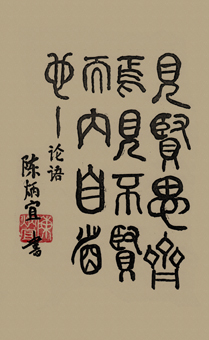 見賢思齊
焉見不賢
而內自省
也—
论语
陈炳宜书